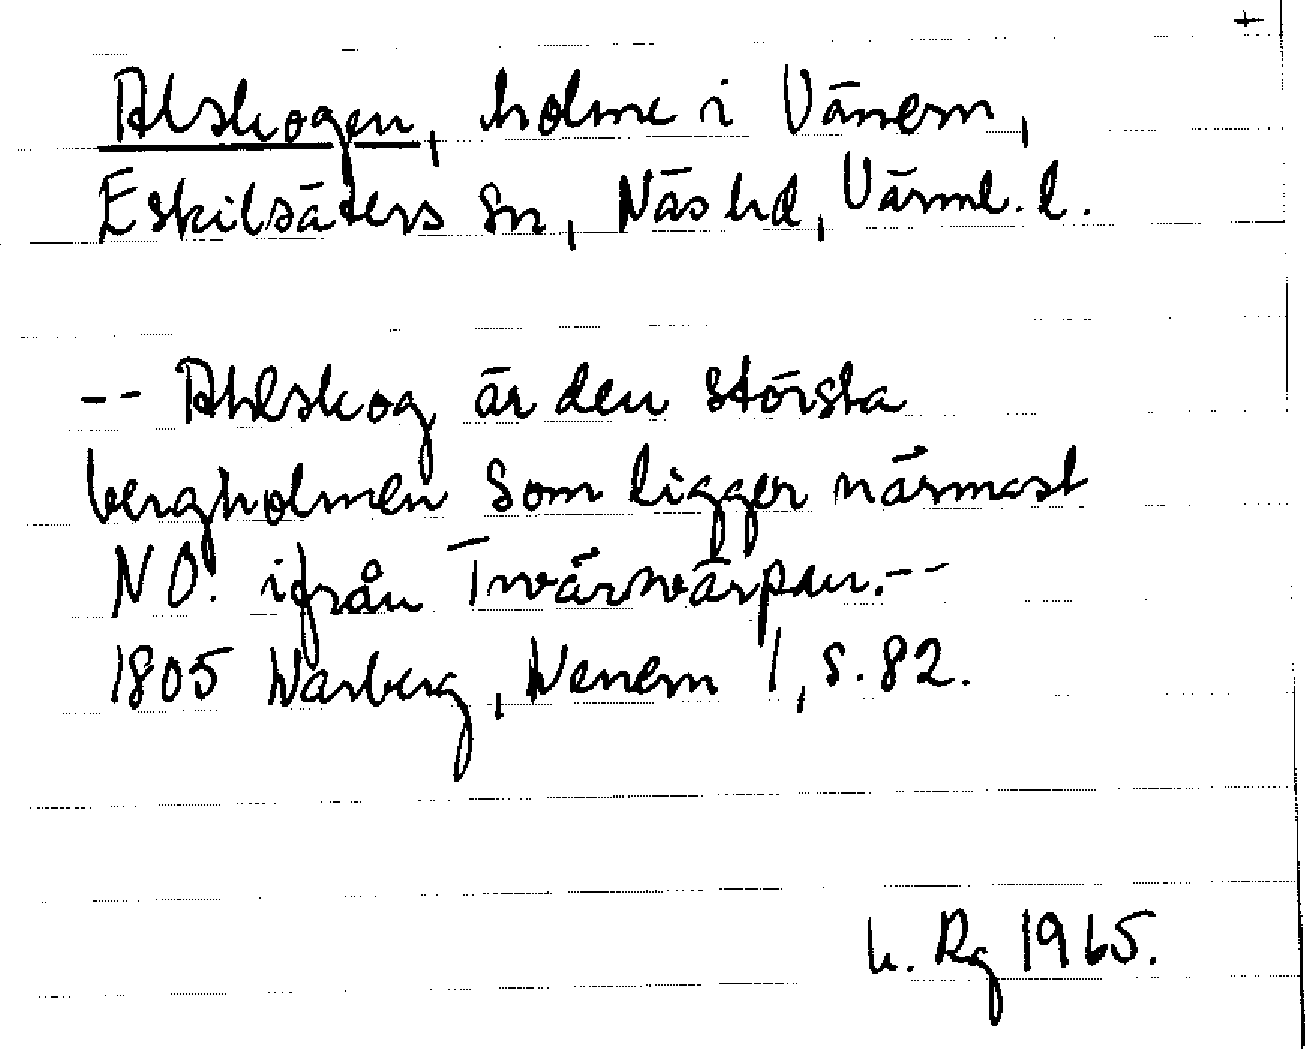 +
Alskogen, holme i Vänern,
Eskilsäters sn, Näs hd, Värml. l.
-- Ahlskog är den största
bergholmen som ligger närmast
NO. ifrån Twärwärpan.--
1805 Warberg, Wenern 1, s. 82.
h. Rg 1965.